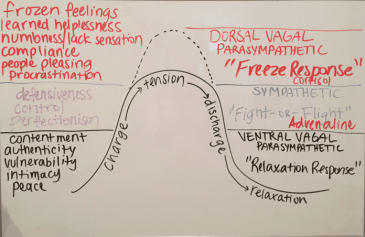 frozen feelings
learned helplessness
numbness/lack sensation
compliance
people pleasing
procrastination
defensiveness
control
perfectionism
contentment
authenticity
vulnerability
intimacy
peace
charge
tension
discharge
relaxation
DORSAL VAGAL
PARASYMPATHETIC
"Freeze Response"
Cortisol
SYMPATHETIC
"Fight-or-Flight"
Adrenaline
VENTRAL VAGAL
PARASYMPATHETIC
"Relaxation Response"